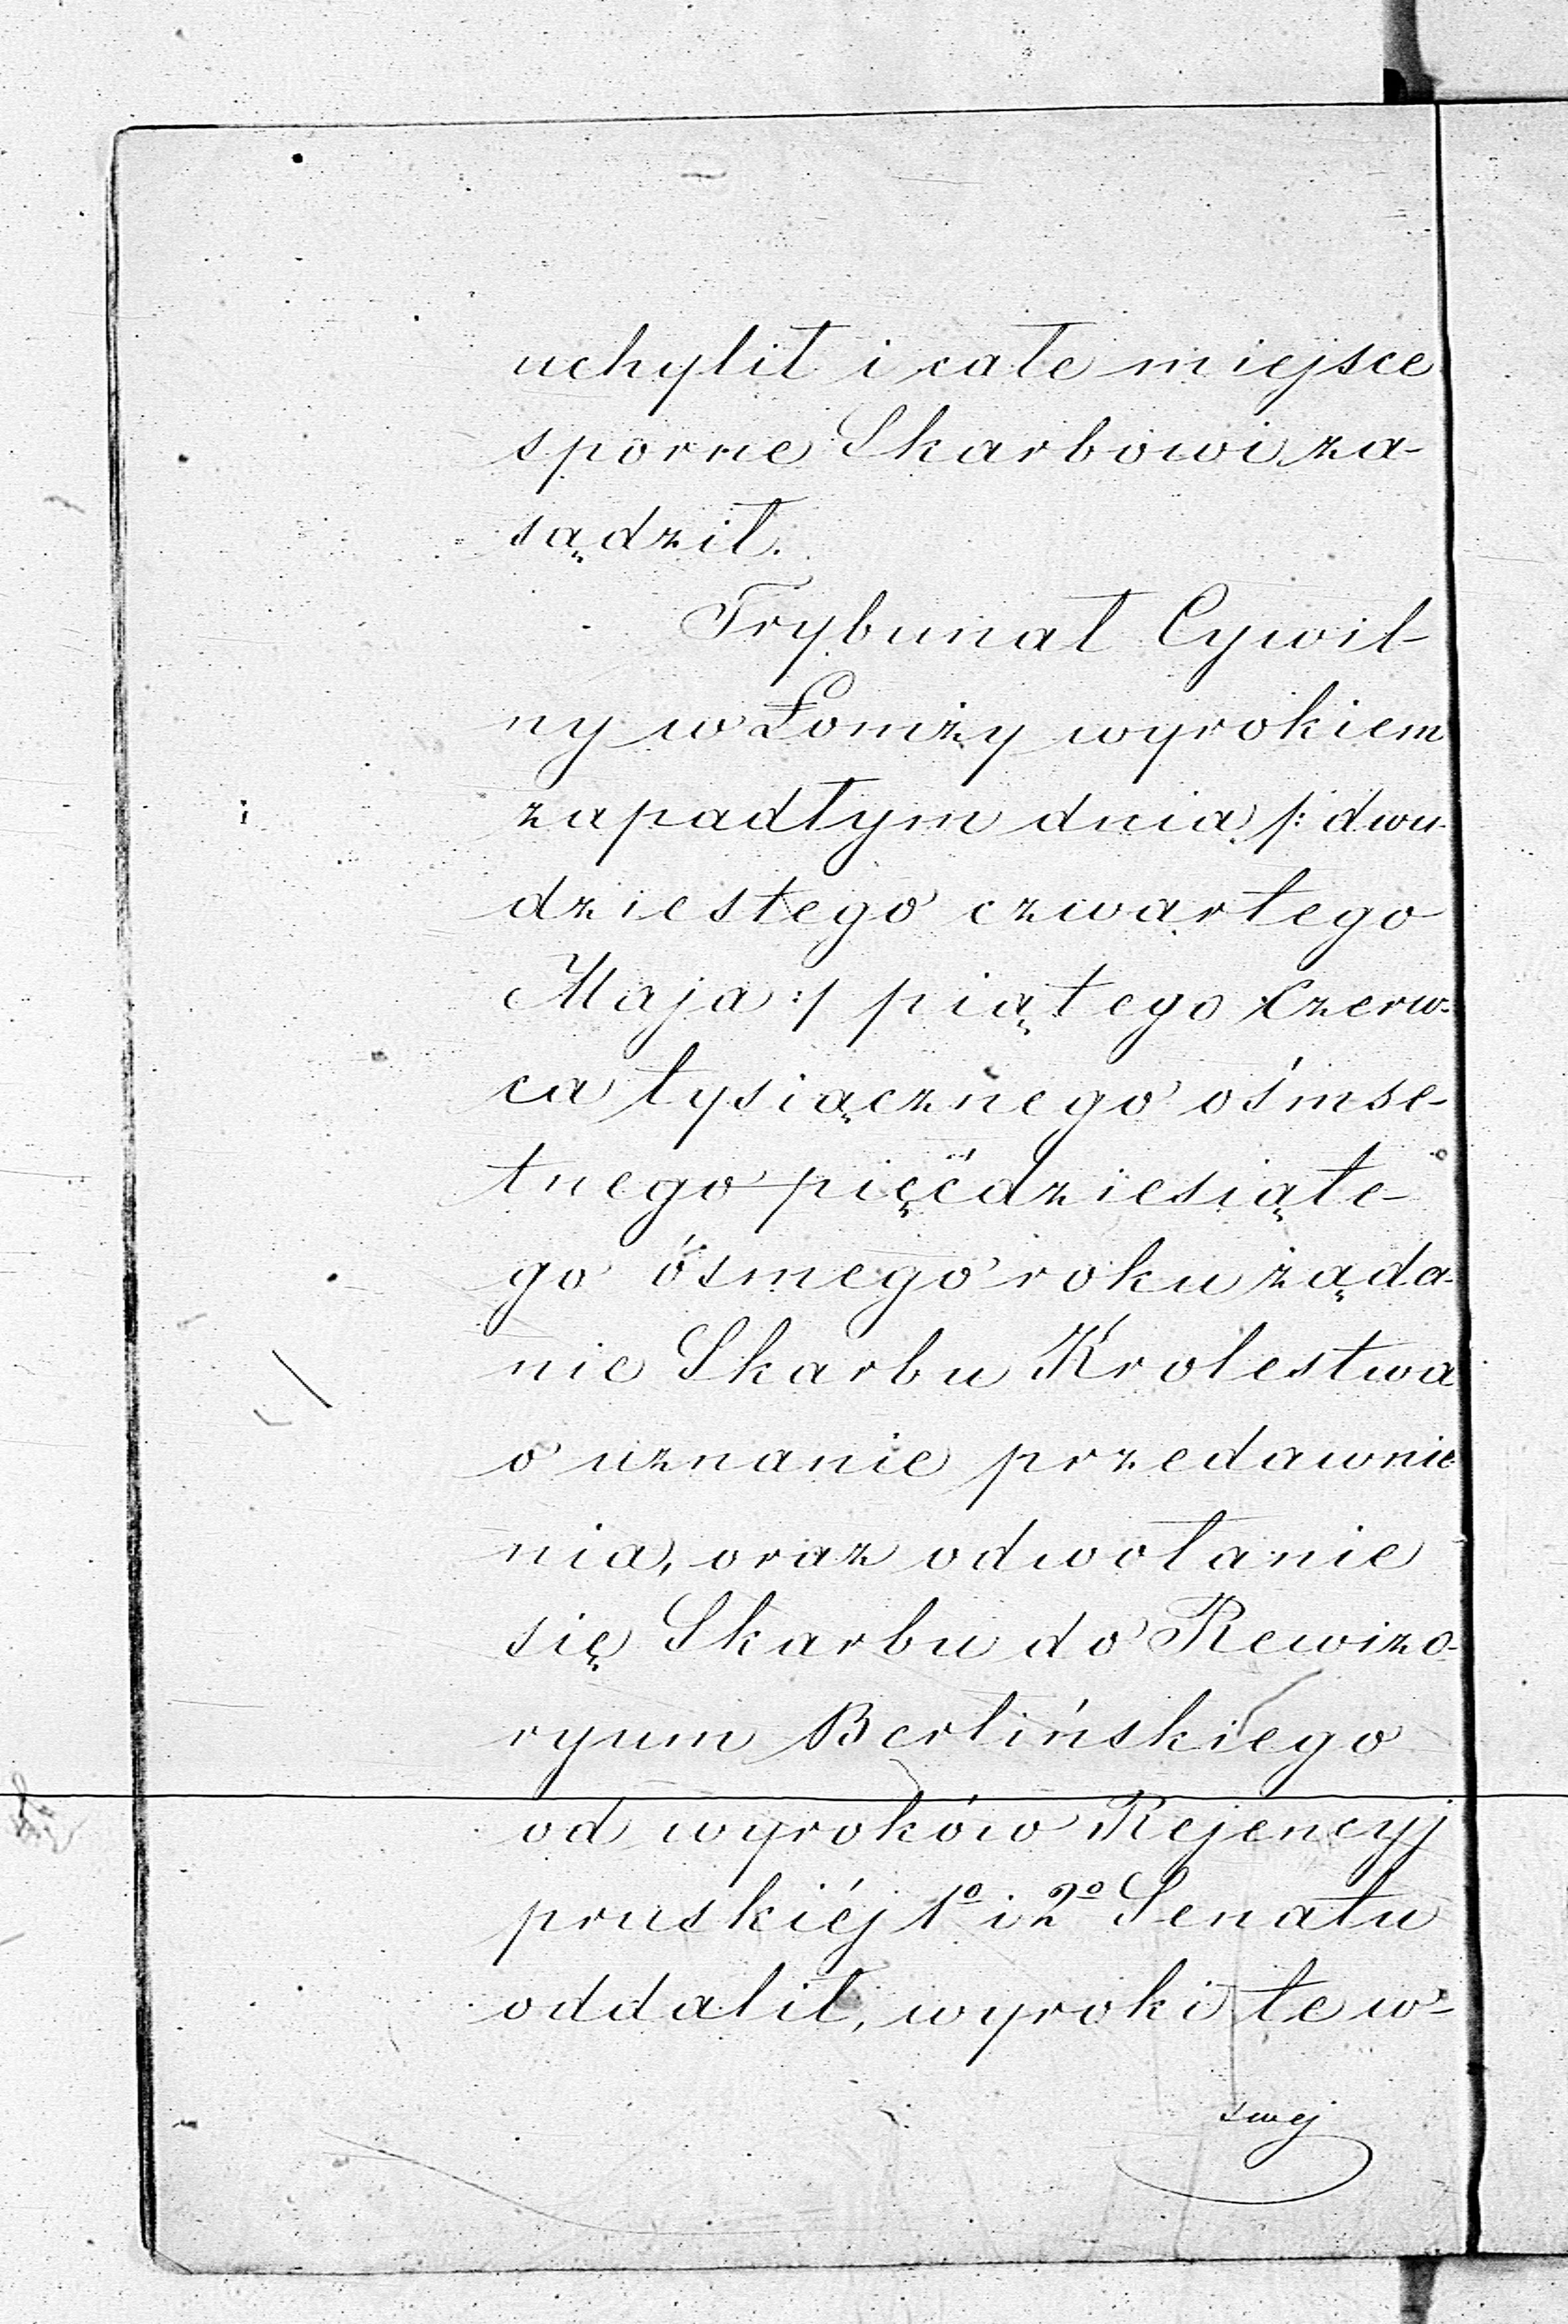 uchylił i całe miejsce
sporne Skarbowi za-
sądził.
Trybunał Cywil-
ny w Łomży wyrokiem
zapadłym dnia /: dwu-
dziestego czwartego
Maja :/ piątego Czerw-
ca tysiącznego ośmse-
tnego pięćdziesiąte-
go ósmego roku żąda-
nie Skarbu Krolestwa
o uznanie przedawnie
nia, oraz odwołanie
się Skarbu do Rewizo-
ryum Berlińskiego
od wyroków Rejencyj
pruskiéj 1º i 2º Senatu
oddalił, wyroki te w-
swej